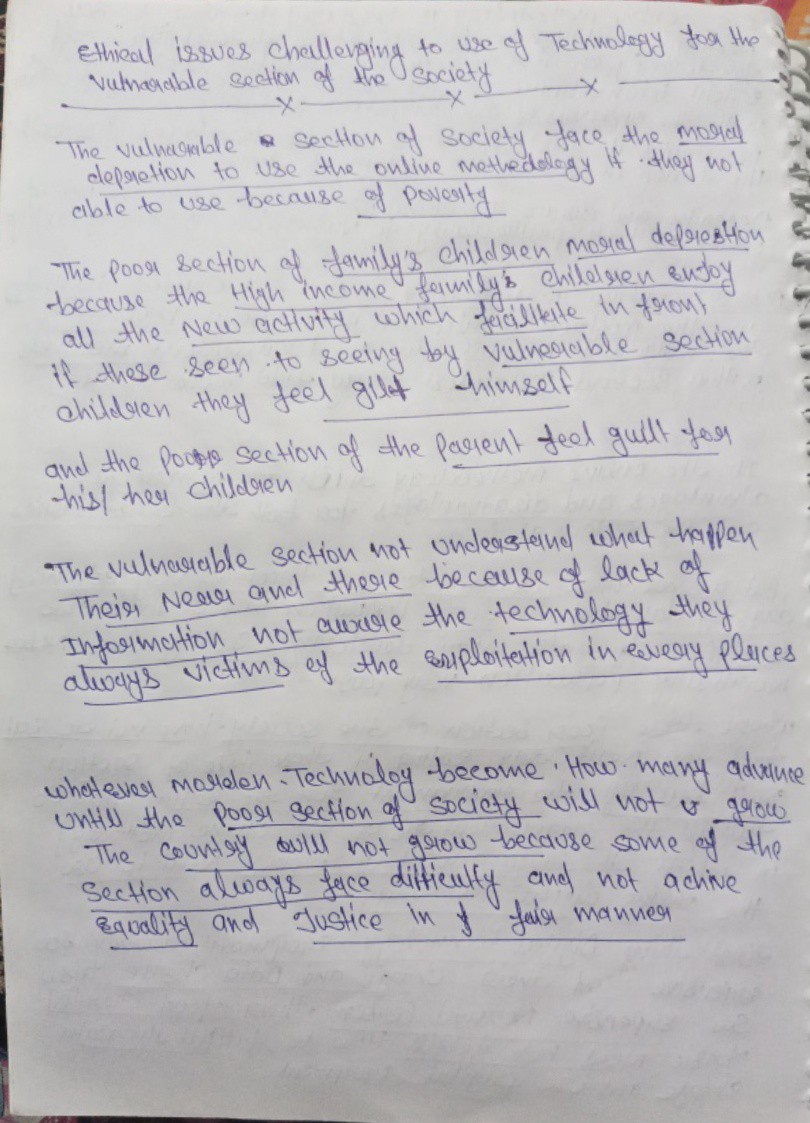 Ethical issues challenging to use of Technology for the
vulnarable section of the society
The vulnarable section of society face the moral
depretion to use the online methedology if they not
able to use because of poverty
The poor section of family's children moral depresstion
because the High income family's children enjoy
all the New activity which facilitate in front
if these seen to seeing by vulnerable section
children they feel gilt himself
and the poor section of the parent feel guilt for
his/ her children
The vulnarable section not understand what happen
Their Near and there because of lack of
Information not aware the technology they
always victims of the exploitation in every places
whatever morden Technoloy become How many advance
Until the poor section of society will not grow
The country will not grow because some of the
section always face difficulty and not achive
Equality and Justice in fair manner